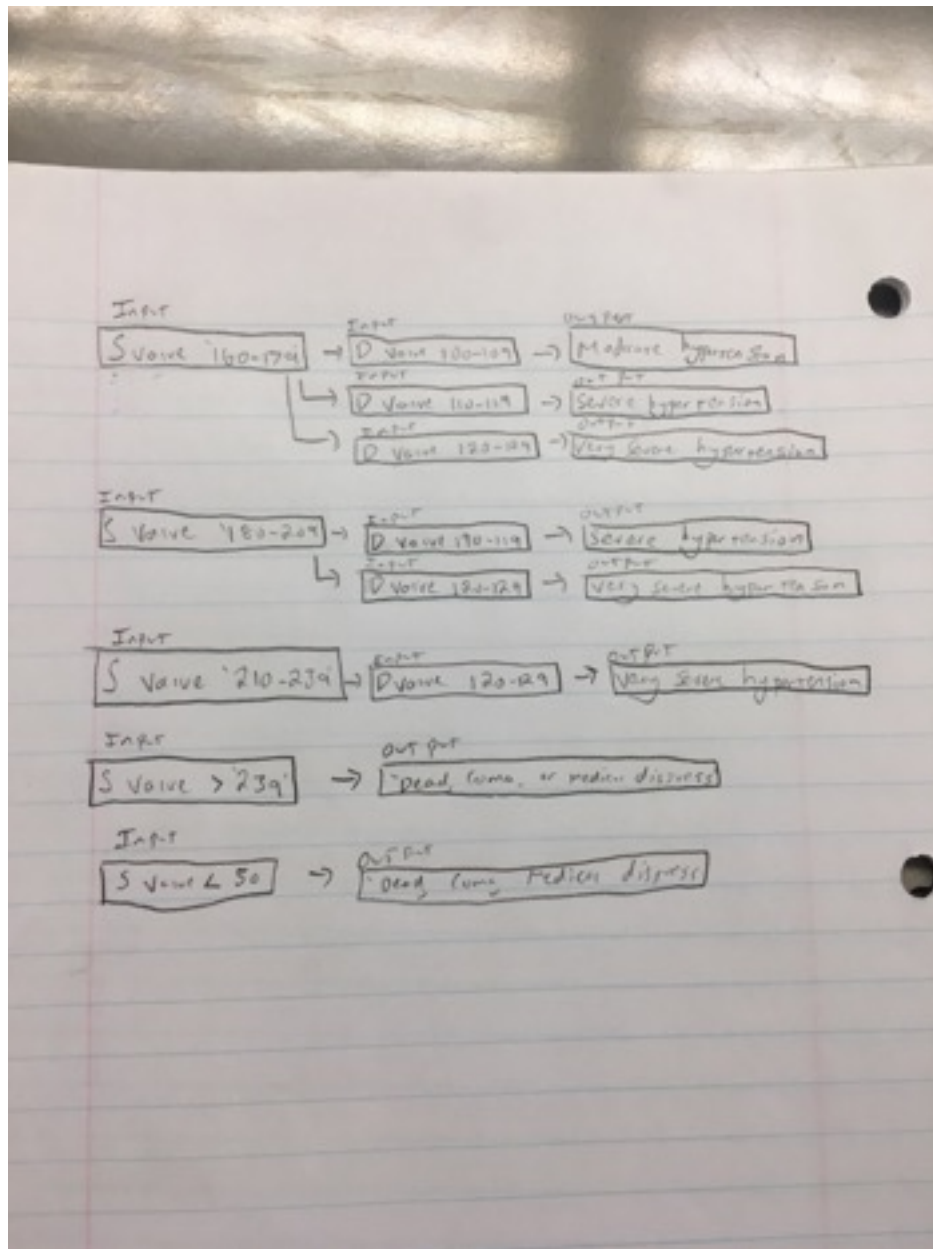 Input
S value '160-179' → Input D value 100-109 → Output Moderate hypertension
Input D value 110-119 → Output Severe hypertension
Input D value 120-129 → Output Very severe hypertension
Input
S value '180-209' → Input D value 110-119 → Output Severe hypertension
Input D value 120-129 → Output Very severe hypertension
Input
S value '210-239' → Input D value 120-129 → Output Very severe hypertension
Input
S value > '239' → Output "Dead, Coma, or medical distress
Input
S value < 50 → Output "Dead, Coma, medical distress